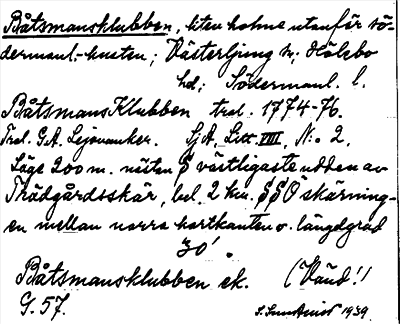 Båtsmansklubben, liten holme utanför sö-
dermanl.-kusten; Västerljung sn, Hölebo
hd; Södermanl. l.
BåtsmansKlubben trol. 1774-76.
Trol. G.A. Lejonanker. SjA. Litt. VIII, No 2.
Läge 200 m. nästan S västligaste udden av
Trädgårdsskär, bel. 2 km. SSO skärning-
en mellan norra kartkanten o. längdgrad
30'.
Båtsmansklubben ek. (Vänd!)
G. 57.
1939